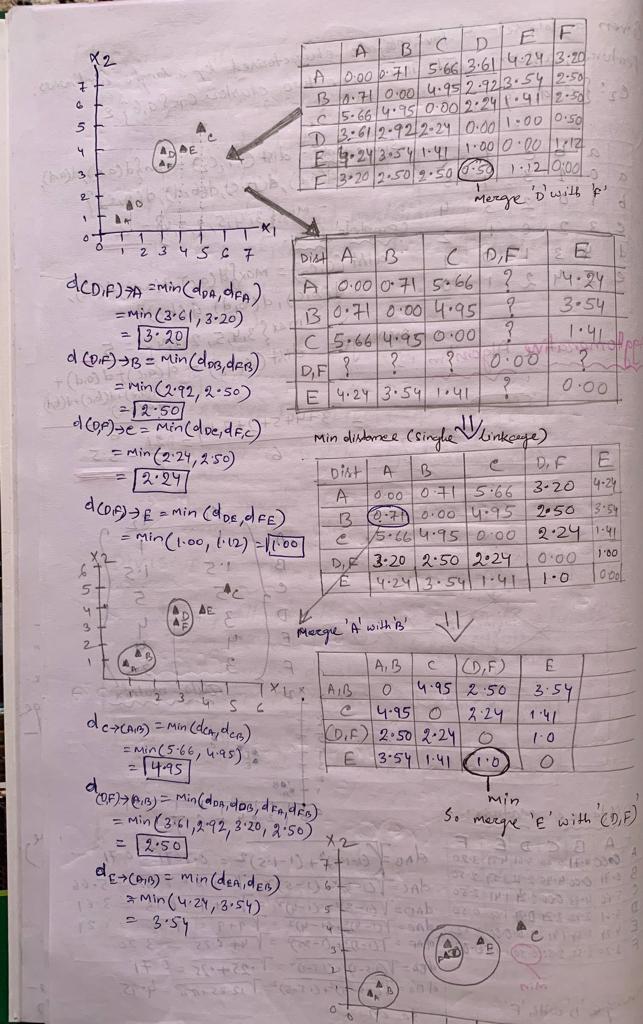 X2
7
6
5
4
3
2
1
0
0 1 2 3 4 5 6 7 X1
C
D E
F
B
A
A B C D E F
A 0.00 0.71 5.66 3.61 4.24 3.20
B 0.71 0.00 4.95 2.92 3.54 2.50
C 5.66 4.95 0.00 2.24 1.41 2.50
D 3.61 2.92 2.24 0.00 1.00 0.50
E 4.24 3.54 1.41 1.00 0.00 1.12
F 3.20 2.50 2.50 0.50 1.12 0.00
Merge 'D' with 'F'
Dist A B C D,F E
A 0.00 0.71 5.66 ? 4.24
B 0.71 0.00 4.95 ? 3.54
C 5.66 4.95 0.00 ? 1.41
D,F ? ? ? 0.00 ?
E 4.24 3.54 1.41 ? 0.00
d(D,F)→A = min(dDA, dFA)
= min(3.61, 3.20)
= 3.20
d(D,F)→B = min(dDB, dFB)
= min(2.92, 2.50)
= 2.50
d(D,F)→C = min(dDC, dF,C)
= min(2.24, 2.50)
= 2.24
d(D,F)→E = min(dDE, dFE)
= min(1.00, 1.12) = 1.00
Min distance (single Linkage)
Dist A B C D,F E
A 0.00 0.71 5.66 3.20 4.24
B 0.71 0.00 4.95 2.50 3.54
C 5.66 4.95 0.00 2.24 1.41
D,F 3.20 2.50 2.24 0.00 1.00
E 4.24 3.54 1.41 1.0 0.00
Merge 'A' with 'B'
X2
6
5
4
3
2
1
1 2 3 4 5 6 X1
C
D E
F
B
A
A,B C (D,F) E
A,B 0 4.95 2.50 3.54
C 4.95 0 2.24 1.41
(D,F) 2.50 2.24 0 1.0
E 3.54 1.41 1.0 0
min
So merge 'E' with '(D,F)'
dC→(A,B) = min(dCA, dCB)
= min(5.66, 4.95)
= 4.95
d(D,F)→(A,B) = min(dDA, dDB, dFA, dFB)
= min(3.61, 2.92, 3.20, 2.50)
= 2.50
dE→(A,B) = min(dEA, dEB)
= min(4.24, 3.54)
= 3.54
X2
7
6
5
4
3
2
1
0
0
C
D E
F
B
A